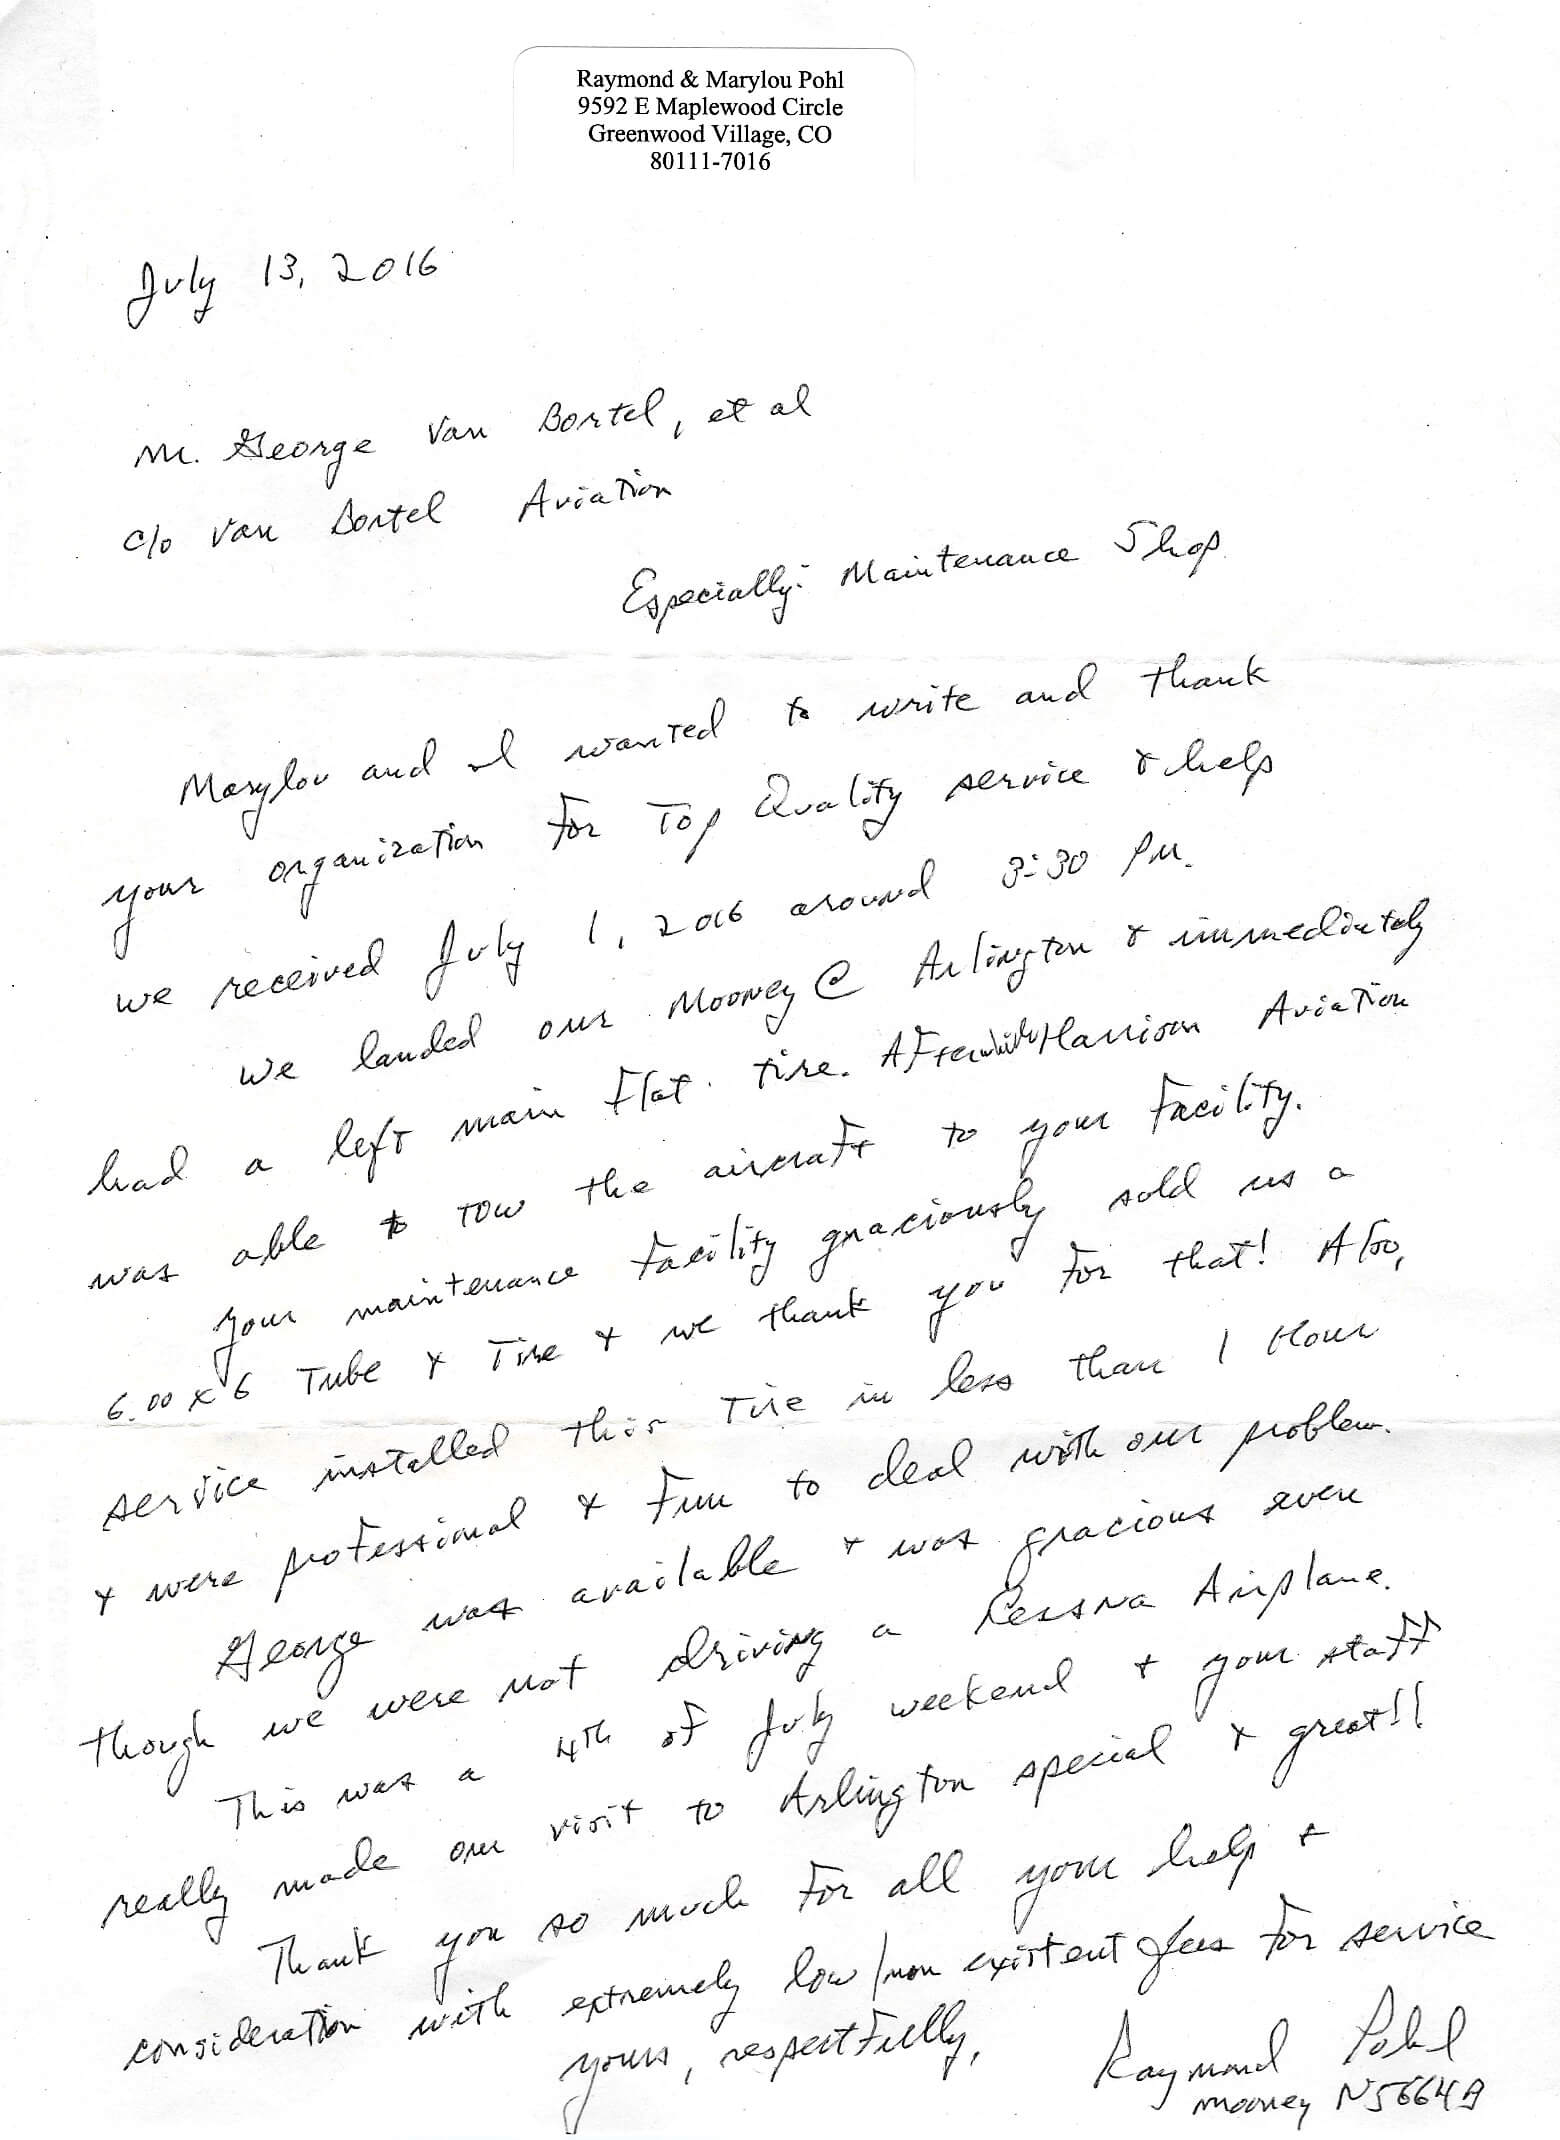 Raymond & Marylou Pohl
9592 E Maplewood Circle
Greenwood Village, CO
80111-7016
July 13, 2016
Mr. George Van Bortel, et al
c/o Van Bortel Aviation
Especially: Maintenance Shop
Marylou and I wanted to write and thank
your organization for Top Quality service & help
we received July 1, 2016 around 3:30 PM.
We landed our Mooney @ Arlington & immediately
had a left main flat tire. Afterwhile Harrison Aviation
was able to tow the aircraft to your facility.
Your maintenance facility graciously sold us a
6.00 x 6 Tube & Tire & we thank you for that! Also,
service installed this Tire in less than 1 Hour
& were professional & fun to deal with our problem.
George was available & was gracious even
though we were not driving a Cessna Airplane.
This was a 4th of July weekend & your staff
really made our visit to Arlington special & great!!
Thank you so much for all your help &
consideration with extremely low/non existent fees for service
yours, respectfully,
Raymond Pohl
Mooney N5664B